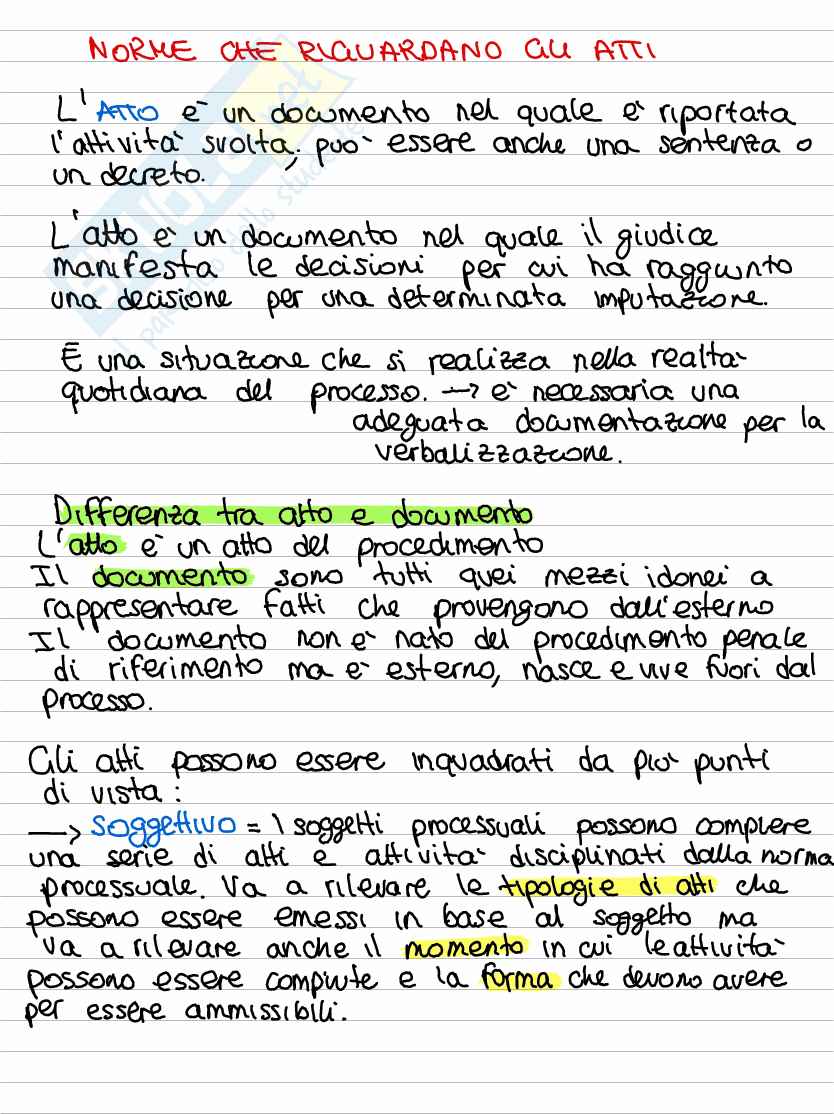 NORME CHE RIGUARDANO GLI ATTI
L'ATTO è un documento nel quale è riportata
l'attività svolta; può essere anche una sentenza o
un decreto.
L'atto è un documento nel quale il giudice
manifesta le decisioni per cui ha raggiunto
una decisione per una determinata imputazione.
È una situazione che si realizza nella realtà
quotidiana del processo. → è necessaria una
adeguata documentazione per la
verbalizzazione.
Differenza tra atto e documento
L'atto è un atto del procedimento
Il documento sono tutti quei mezzi idonei a
rappresentare fatti che provengono dall'esterno
Il documento non è nato del procedimento penale
di riferimento ma è esterno, nasce e vive fuori dal
processo.
Gli atti possono essere inquadrati da più punti
di vista:
→ SOGGETTIVO = I soggetti processuali possono compiere
una serie di atti e attività disciplinati dalla norma
processuale. Va a rilevare le tipologie di atti che
possono essere emessi in base al soggetto ma
va a rilevare anche il momento in cui le attività
possono essere compiute e la forma che devono avere
per essere ammissibili.